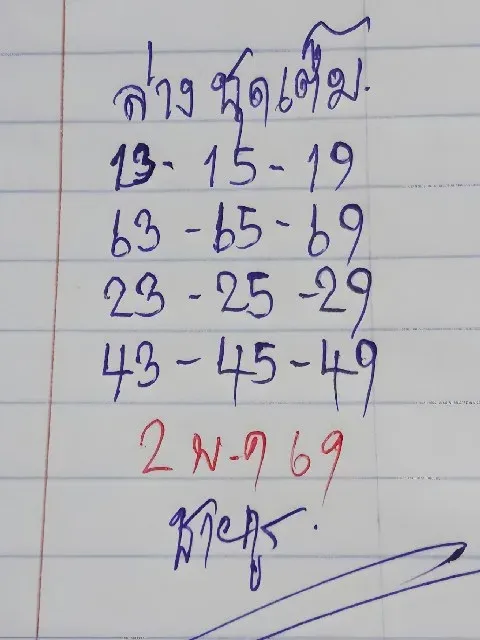 ล่าง ชุดเต็ม.
13 - 15 - 19
63 - 65 - 69
23 - 25 - 29
43 - 45 - 49
2 พ.ค 69